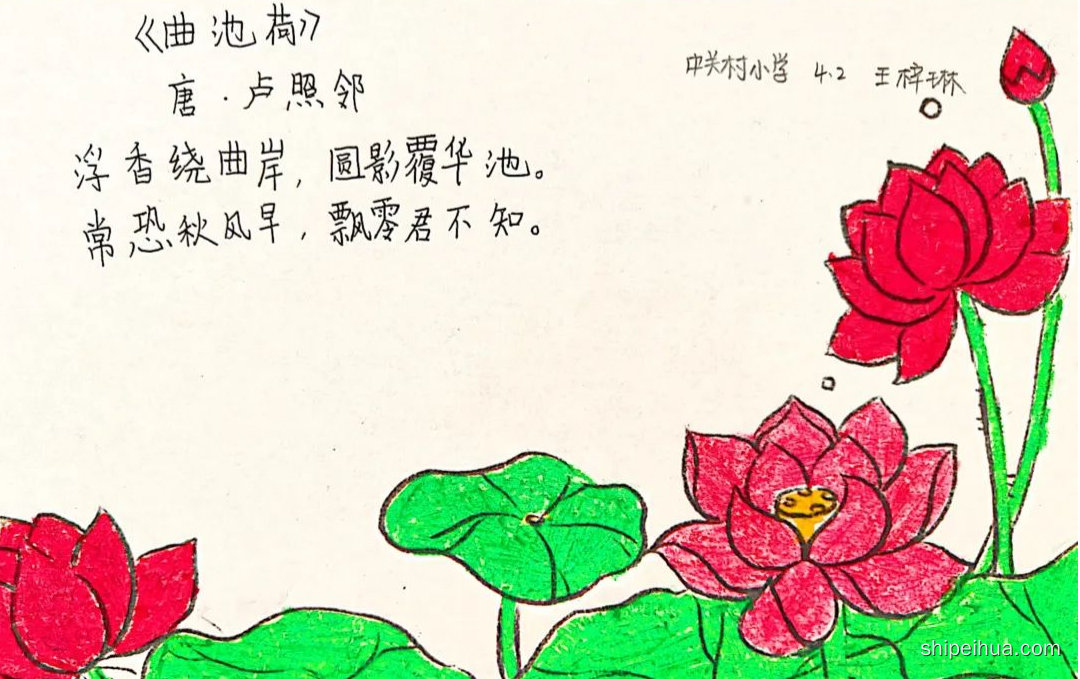 《曲池荷》
唐·卢照邻
浮香绕曲岸，圆影覆华池。
常恐秋风早，飘零君不知。
中关村小学 4.2 王梓琳
shipeihua.com